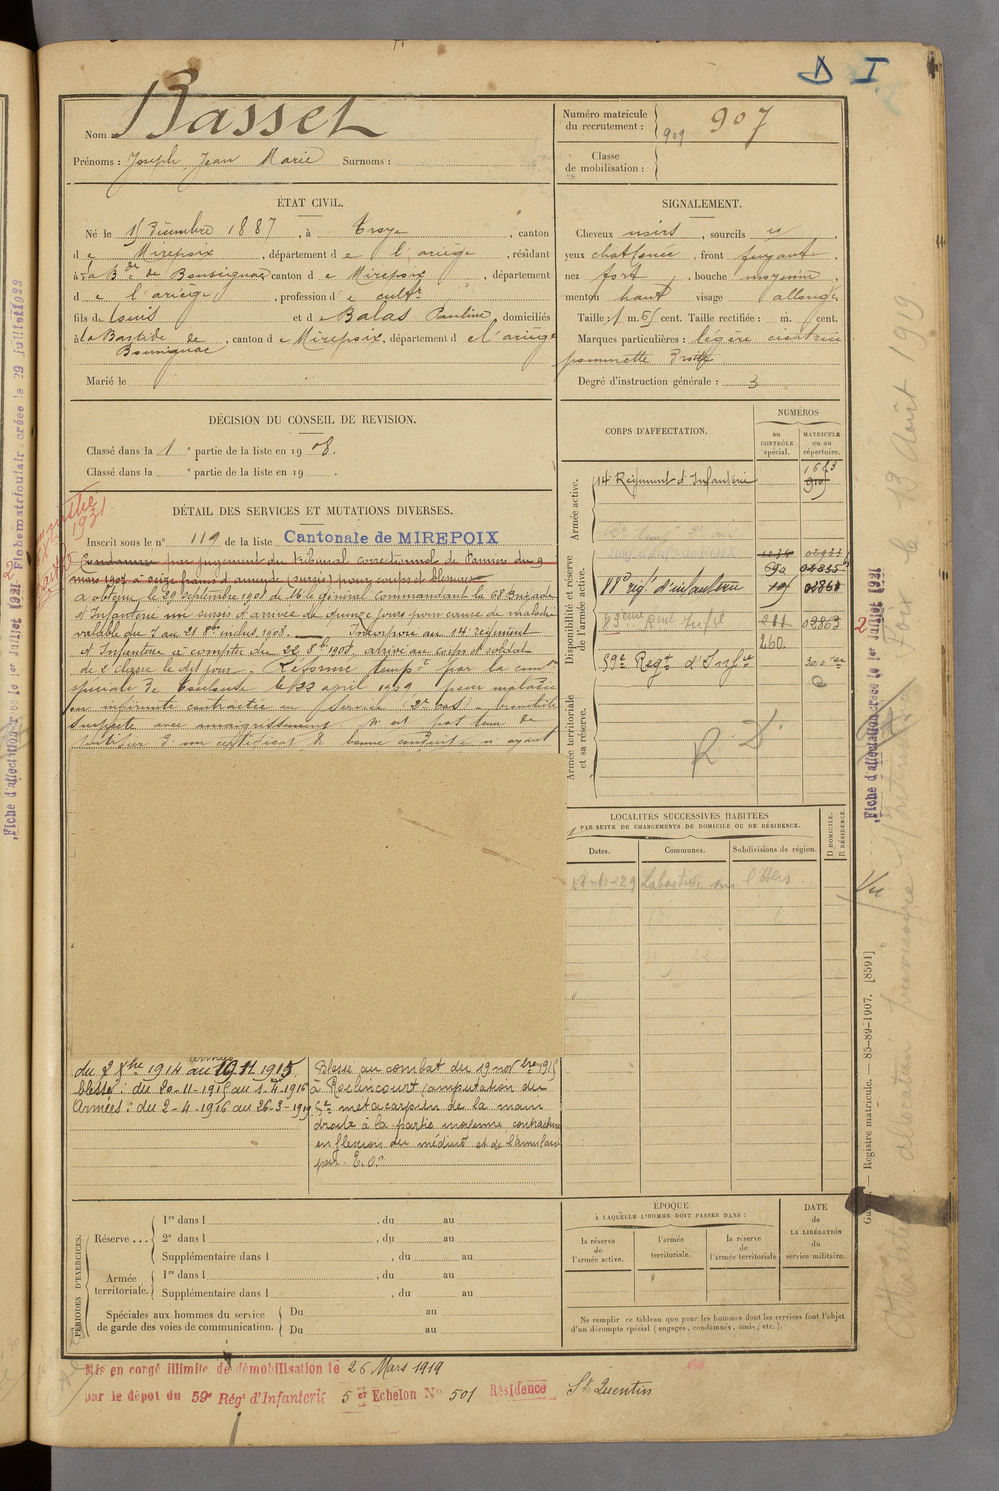 D I
Nom : Basset
Prénoms : Joseph Jean Marie Surnoms :
Numéro matricule du recrutement : 909 907
Classe de mobilisation :
ÉTAT CIVIL.
Né le 15 Décembre 1887, à Troye, canton
de Mirepoix, département de l'ariège, résidant
à la Bde de Bousignac canton de Mirepoix, département
de l'ariège, profession de cultr
fils de Louis et de Balas Pauline, domiciliés
à la Bastide de Bousignac, canton de Mirepoix, département de l'ariège
Marié le
SIGNALEMENT.
Cheveux noirs, sourcils
yeux chat foncé, front fuyant,
nez fort, bouche moyenne
menton haut visage allongé.
Taille : 1 m. 65 cent. Taille rectifiée : m. cent.
Marques particulières : légère cicatrice
pommette droite
Degré d'instruction générale : 3
DÉCISION DU CONSEIL DE REVISION.
Classé dans la 1e partie de la liste en 1908.
Classé dans la e partie de la liste en 19 .
DÉTAIL DES SERVICES ET MUTATIONS DIVERSES.
Inscrit sous le n° 119 de la liste Cantonale de MIREPOIX
Condamné par jugement du tribunal correctionnel de Pamiers du 9
mars 1907 à seize francs d'amende (sursis) pour coups et blessures
a obtenu le 29 septembre 1908 de Mr le Général Commandant la 68 Brigade
d'Infanterie un sursis d'arrivée de quinze jours pour cause de maladie
valable du 7 au 21 8bre inclus 1908. Incorporé au 14e régiment
d'Infanterie à compter du 22 8bre 1908, arrivé au corps et soldat
de 2e classe le dit jour. Réformé tempre par la comon
spéciale de Toulouse le 22 april 1909 pour maladie
ou infirmité contractée au service (2e cas) bronchite
suspecte avec amaigrissement. N'est pas tenu de
justifier d'un certificat de bonne conduite n'ayant
du 2 Xbre 1914 au 19 11 1915
armées
blessé : du 20-11-1915 au 1-4-1916
Armées : du 2-4-1916 au 26-3-1919
Blessé au combat du 19 novbre 1915
à Roclincourt, amputation du
5e métacarpien de la main
droite à la partie moyenne, contracture
en flexion du médius et de l'annulaire
CORPS D'AFFECTATION.
NUMÉROS
au CONTRÔLE spécial.
MATRICULE ou au répertoire.
Armée active.
14e Régiment d'Infanterie
1683
910
Disponibilité et réserve de l'armée active.
690 02835
11e régt d'infanterie 02861
83eme Régt Infie 211 02863
260.
59e Regt d'Infie
Armée territoriale et sa réserve.
R. D.
LOCALITÉS SUCCESSIVES HABITÉES
PAR SUITE DE CHANGEMENTS DE DOMICILE OU DE RÉSIDENCE.
Dates. Communes. Subdivisions de région. D DOMICILE. R RÉSIDENCE.
Labastide sur l'Hers
PÉRIODES D'EXERCICES.
Réserve ... 1re dans l , du au
2e dans l , du au
Supplémentaire dans l , du au
Armée territoriale. 1re dans l , du au
Supplémentaire dans l , du au
Spéciales aux hommes du service de garde des voies de communication. Du au
Du au
ÉPOQUE
À LAQUELLE L'HOMME DOIT PASSER DANS :
la réserve de l'armée active. l'armée territoriale. la réserve de l'armée territoriale
DATE de LA LIBÉRATION du service militaire.
Ne remplir ce tableau que pour les hommes dont les services font l'objet
d'un décompte spécial (engagés, condamnés, omis, etc.).
Mis en congé illimité de démobilisation le 26 Mars 1919
par le dépôt du 59e Régt d'Infanterie 5er Echelon N° 501 Résidence St Quentin
Fiche d'affectation créée le 1er Juillet 1921
Vu
Registre matricule. — 85-89-1907. [8591]
Foix le 13 Août 1919
Fiche d'affectation créée le 1er Juillet 1921. Fiche matriculaire créée le 29 juillet 1922